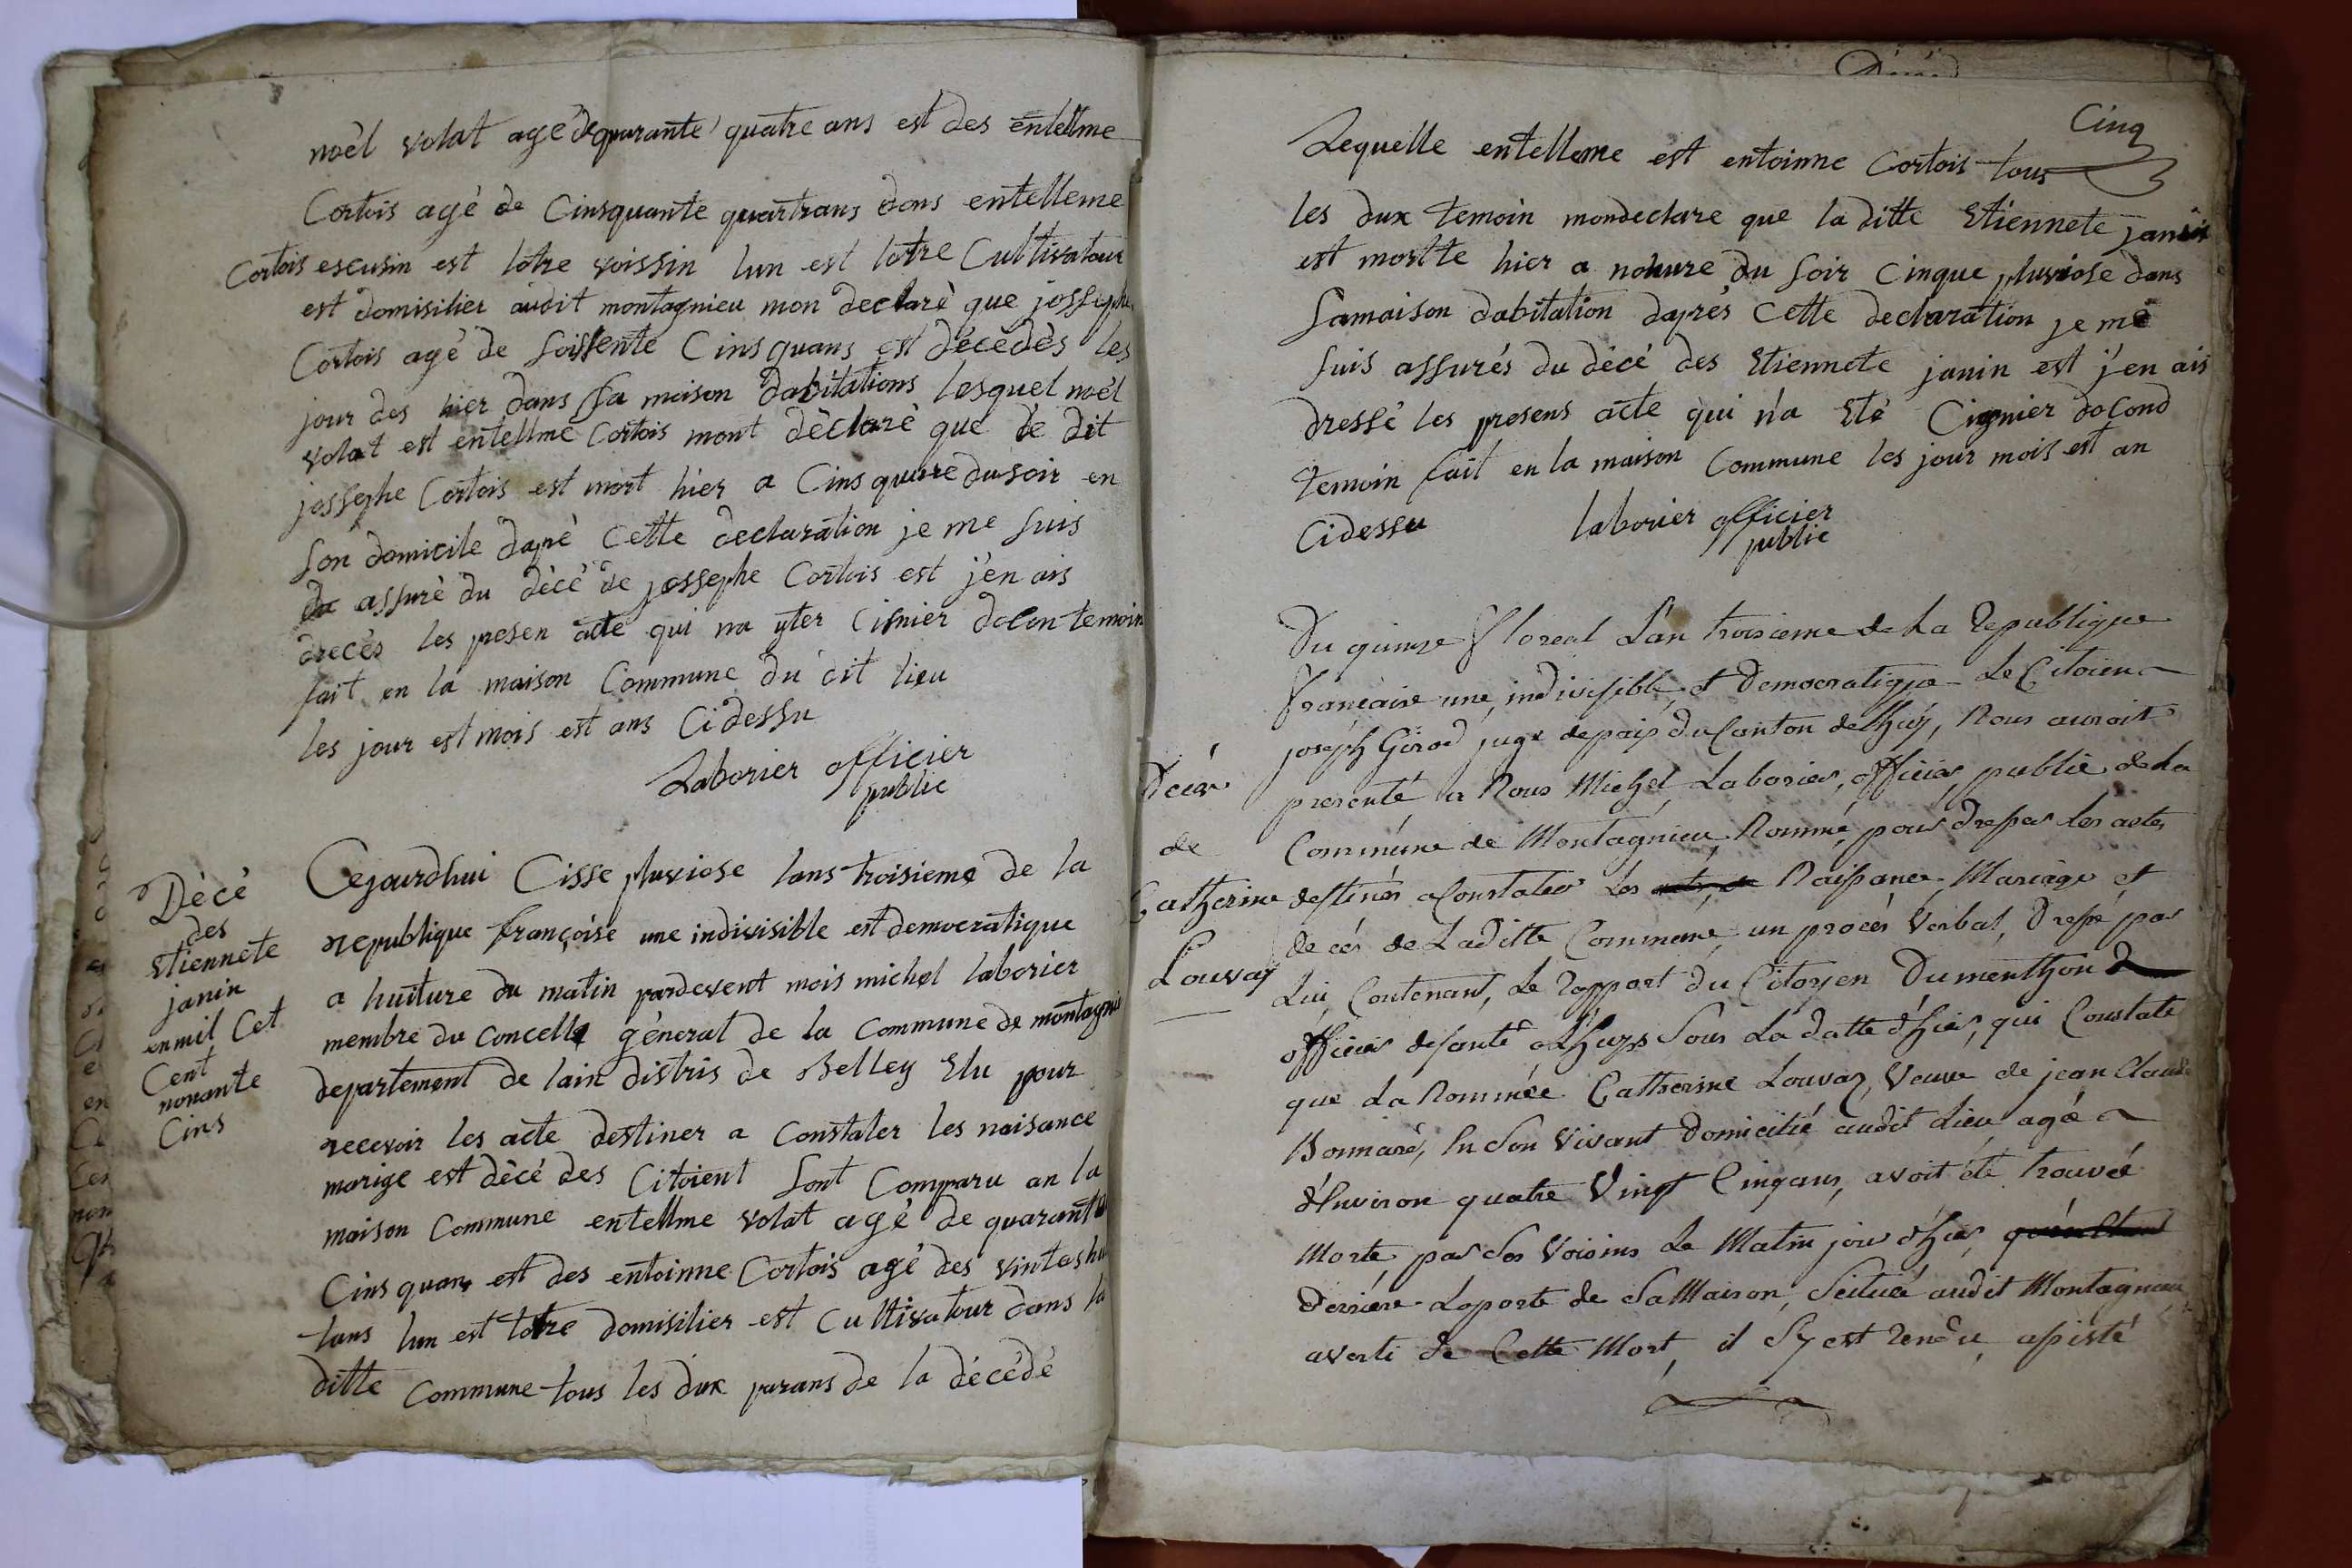 noèl volat agé de quarante quatre ans est des entellme
Cortois agé de Cinsquante quartrans dons entelleme
Cortois escusin est lotre voissin lun est lotre Cultivatour
est domisilier audit montagnieu mon declaré que jossephe
Cortois agé de soissente Cinsquans est décédés les
jour des hier dans sa maison dabitations lesquel noél
volat est entellme Cortois mont déclaré que le dit
jossephe Cortois est mort hier a Cinsquure du soir en
son domicile dapré cette declaration je me suis
assuré du décé de jossephe Cortois est j'en ais
drecés les presen acte qui na yter Cisnier dolon temoin
fait en la maison Commune du dit lieu
les jour est mois est ans Cidessu
Laborier officier
public
Décé
des
Etiennete
janin
en mil Cet
Cent
nonante
Cins
Cejourdhui Cisse pluviose lans troisieme de la
republique françoise une indivisible est democratique
a huiture du matin pardevent mois michel laborier
membre du Concelle géneral de la Commune de montagni
departement de lain distris de Belley Elu pour
recevoir les acte destiner a Constater les naisance
marige est décé des Citoient sont Comparu an la
maison Commune entellme volat agé de quarante
Cinsquans est des entoinne Cortois agé des vintehu
tans lun est totre domisilier est Cultivatour dans la
ditte Commune tous les dux parans de la décédé
Cinq
Lequelle entelleme est entoinne Cortois tous
les dux temoin mondeclare que la ditte Etiennete janin
est mortte hier a nohure du soir Cinque pluviose dans
samaison dabitation daprés Cette declaration je me
suis assurés du décé des Etiennete janin est j'en ais
dressé les presens acte qui n'a Eté Cignier dolond
temoin fait en la maison Commune les jour mois est an
Cidessu laborier officier
public
Décès
de
Catherine
Louvaz
Du quinze floreal L'an troisieme de La Republique
française une, indivisible, et Democratique Le Citoien
joseph Girod juge depaix du Canton de Lhuis, Nous auroit
presenté a Nous Michel Laborier, officier public de La
Commúne de Montagnieu Nommé, pour dresser les actes
destinés a Constater Les Naissance Mariage et
decés de Laditte Commune un procés Verbal, Dressé par
Lui, Contenant, Le Rapport du Citoyen Dumenthon
officier desanté a Lhuys Sous La datte d'hier, qui Constate
que La Nommée Catherine Louvaz, Veuve de jean Claude
Bonnard, En Son Vivant Domicilié audit Lieu agée
d'Environ quatre Vingt Cinq ans, avoit été trouvée
Morte par Ses Voisins Le Matin jour d'hier
Derriere Laporte de SaMaison, Scituée audit Montagneux
averti de Cette Mort, il S'y est Rendu, assisté